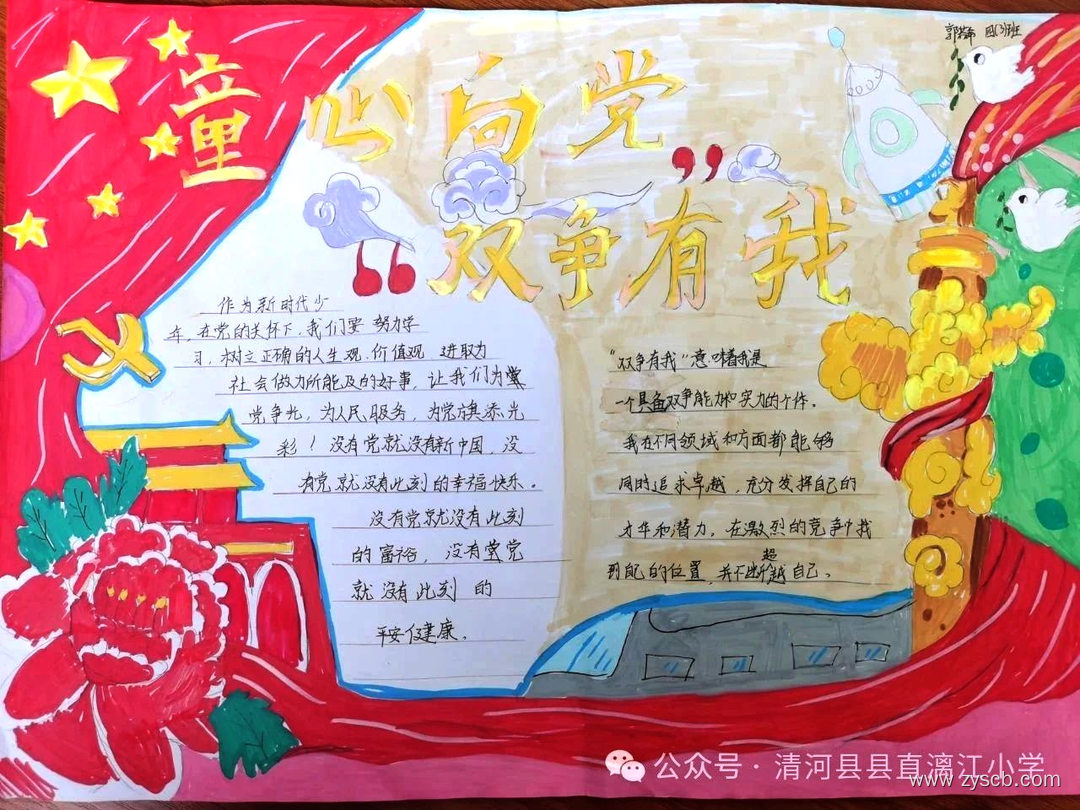 四(3)班
童心向党
“双争有我”
作为新时代少
年，在党的关怀下，我们要努力学
习，树立正确的人生观、价值观 进取为
社会做力所能及的好事，让我们为
党争光，为人民服务，为党旗添光
彩！没有党就没有新中国，没
有党就没有此刻的幸福快乐。
没有党就没有此刻
的富裕，没有党
就没有此刻的
平安健康。
“双争有我”意味着我是
一个具备双争能力和实力的个体。
我在不同领域和方面都能够
同时追求卓越，充分发挥自己的
才华和潜力，在激烈的竞争中找
到自己的位置，并不断超越自己。
公众号·清河县县直漓江小学
www.zyscb.com